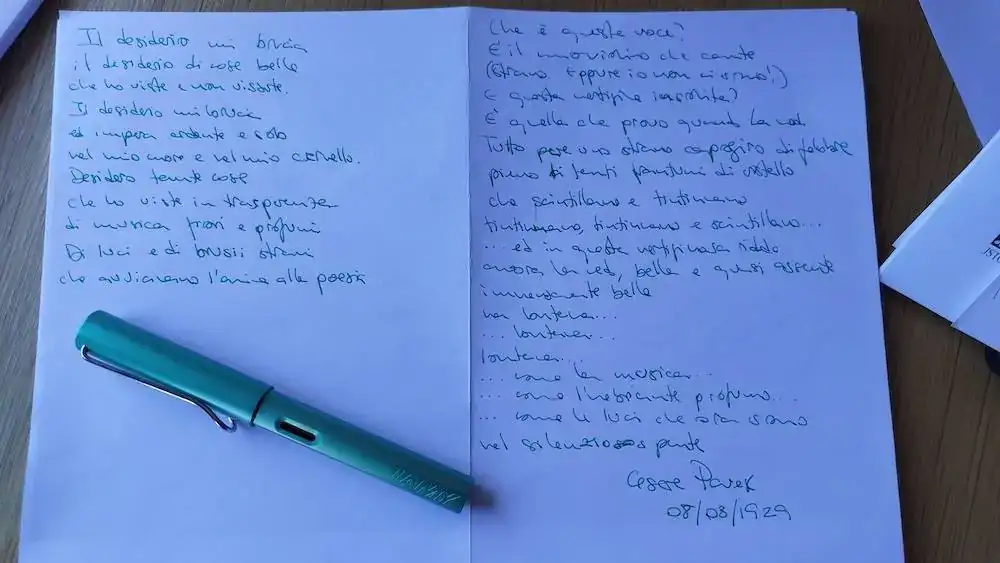 Il desiderio mi brucia
il desiderio di cose belle
che ho viste e non vissute.
Il desiderio mi brucia
ed impera ardente e solo
nel mio cuore e nel mio cervello.
Desidero tante cose
che ho viste in trasparenza
di musica fiori e profumi
Di luci e di brusii strani
che avvicinano l'anima alla poesia
Che è questa voce?
È il morivolino che conte
(strano. Eppure io non ci sono!)
E questa vertigine insolita?
È quella che provo quando la vedo.
Tutto pare uno strano capogiro di febbre
pieno di tenti frantumi di cristallo
che scintillano e tintinnano
tintinnano, tintinnano e scintillano...
... ed in questa vertiginosa ridda
ancora la vedo, bella e quasi assente
immensamente bella
ma lontana...
... lontana...
lontana...
... come la musica...
... come l'inebriante profumo...
... come le luci che ora sono
nel silenzioso parte
Cesare
08/08/1929
LAMY